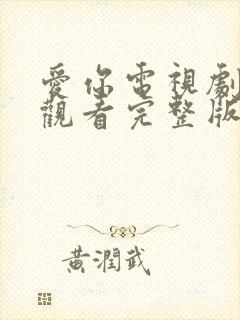 愛你電視劇
觀看完整版
黃潤武